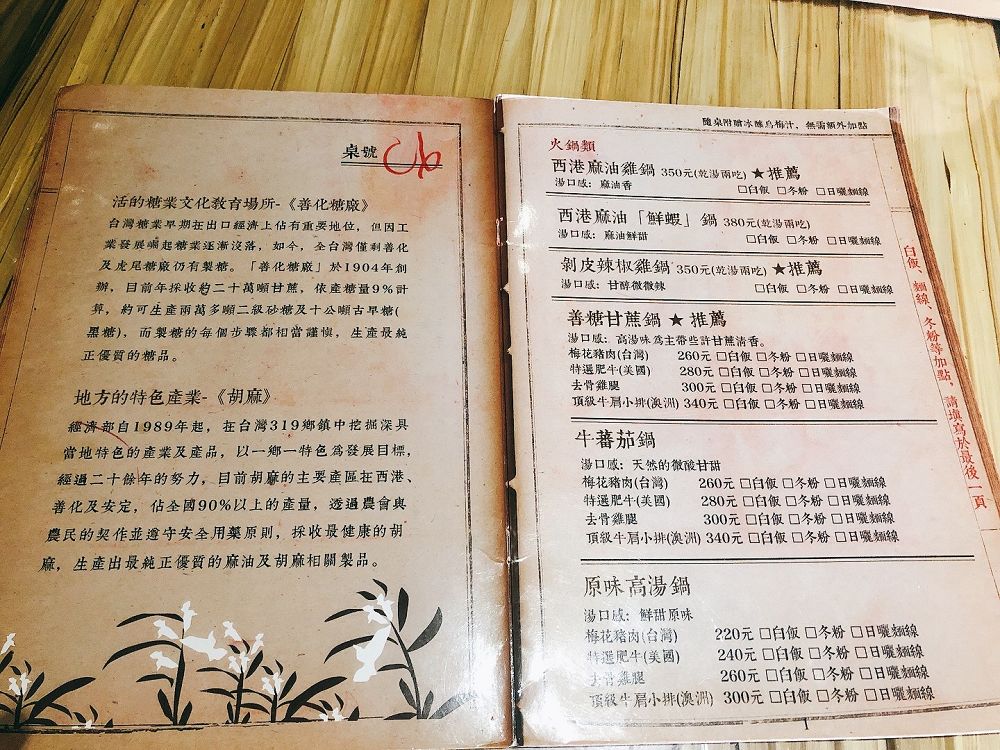 桌號
活的糖業文化教育場所-《善化糖廠》
台灣糖業早期在出口經濟上佔有重要地位，但因工
業發展崛起糖業逐漸沒落，如今，全台灣僅剩善化
及虎尾糖廠仍有製糖。「善化糖廠」於1904年創
辦，目前年採收約二十萬噸甘蔗，依產糖量9%計
算，約可生產兩萬多噸二級砂糖及十公噸古早糖(
黑糖)，而製糖的每個步驟都相當謹慎，生產最純
正優質的糖品。
地方的特色產業-《胡麻》
經濟部自1989年起，在台灣319鄉鎮中挖掘深具
當地特色的產業及產品，以一鄉一特色為發展目標，
經過二十餘年的努力，目前胡麻的主要產區在西港、
善化及安定，佔全國90%以上的產量，透過農會與
農民的契作並遵守安全用藥原則，採收最健康的胡
麻，生產出最純正優質的麻油及胡麻相關製品。
隨桌附贈冰釀烏梅汁，無需額外加點
火鍋類
西港麻油雞鍋 350元(乾湯兩吃) ★推薦
湯口感：麻油香 □白飯 □冬粉 □日曬麵線
西港麻油「鮮蝦」鍋 380元(乾湯兩吃)
湯口感：麻油鮮甜 □白飯 □冬粉 □日曬麵線
剝皮辣椒雞鍋 350元(乾湯兩吃) ★推薦
湯口感：甘醇微微辣 □白飯 □冬粉 □日曬麵線
善糖甘蔗鍋 ★ 推薦
湯口感：高湯味為主帶些許甘蔗清香。
梅花豬肉(台灣) 260元 □白飯 □冬粉 □日曬麵線
特選肥牛(美國) 280元 □白飯 □冬粉 □日曬麵線
去骨雞腿 300元 □白飯 □冬粉 □日曬麵線
頂級牛肩小排(澳洲) 340元 □白飯 □冬粉 □日曬麵線
牛蕃茄鍋
湯口感：天然的微酸甘甜
梅花豬肉(台灣) 260元 □白飯 □冬粉 □日曬麵線
特選肥牛(美國) 280元 □白飯 □冬粉 □日曬麵線
去骨雞腿 300元 □白飯 □冬粉 □日曬麵線
頂級牛肩小排(澳洲) 340元 □白飯 □冬粉 □日曬麵線
原味高湯鍋
湯口感：鮮甜原味
梅花豬肉(台灣) 220元 □白飯 □冬粉 □日曬麵線
特選肥牛(美國) 240元 □白飯 □冬粉 □日曬麵線
去骨雞腿 260元 □白飯 □冬粉 □日曬麵線
頂級牛肩小排(澳洲) 300元 □白飯 □冬粉 □日曬麵線
白飯、麵線、冬粉等加點，請填寫於最後一頁
1